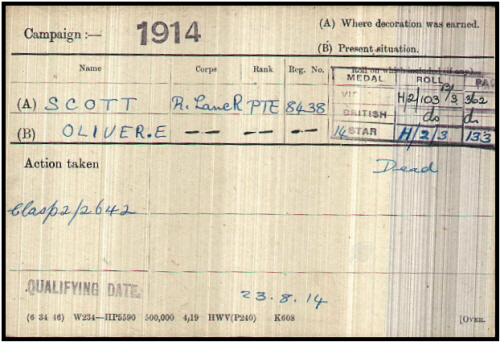 Campaign :— 1914
(A) Where decoration was earned.
(B) Present situation.
Name Corps Rank Reg. No. Roll on which included (if any).
MEDAL ROLL PAGE
(A) SCOTT R. Lanc R PTE 8438
VICTORY H/2/103 B/3 362
BRITISH do do
(B) OLIVER.E — — — — — —
14 STAR H/2/3 133
Action taken
Dead
Clasp 2/2642
QUALIFYING DATE.
23.8.14
(6 34 46) W234—HP5590 500,000 4/19 HWV(P240) K608
[OVER.